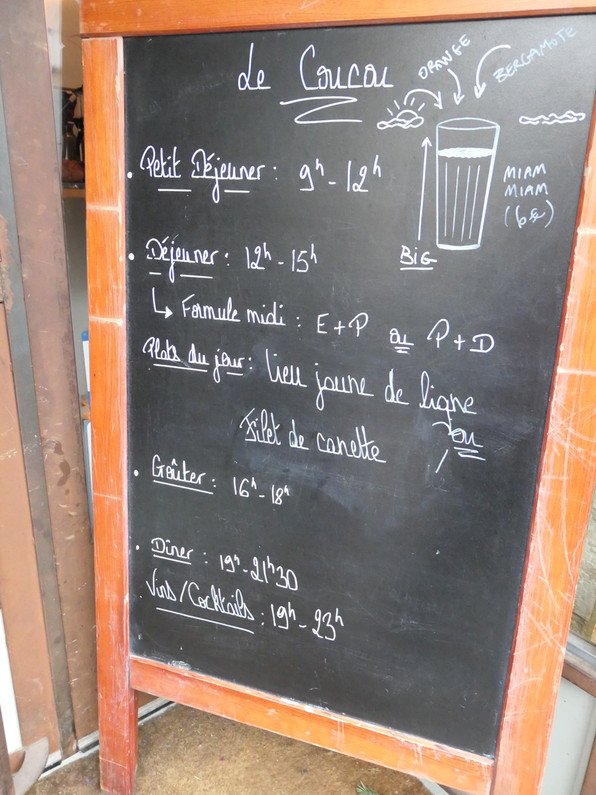 Le Coucou
ORANGE
BERGAMOTE
MIAM
MIAM
(6€)
BIG
• Petit Déjeuner : 9h - 12h
• Déjeuner : 12h - 15h
↳ Formule midi : E + P ou P + D
Plats du jour : lieu jaune de ligne
ou
Filet de canette
• Goûter : 16h - 18h
• Dîner : 19h - 21h30
Vins / Cocktails : 19h - 23h